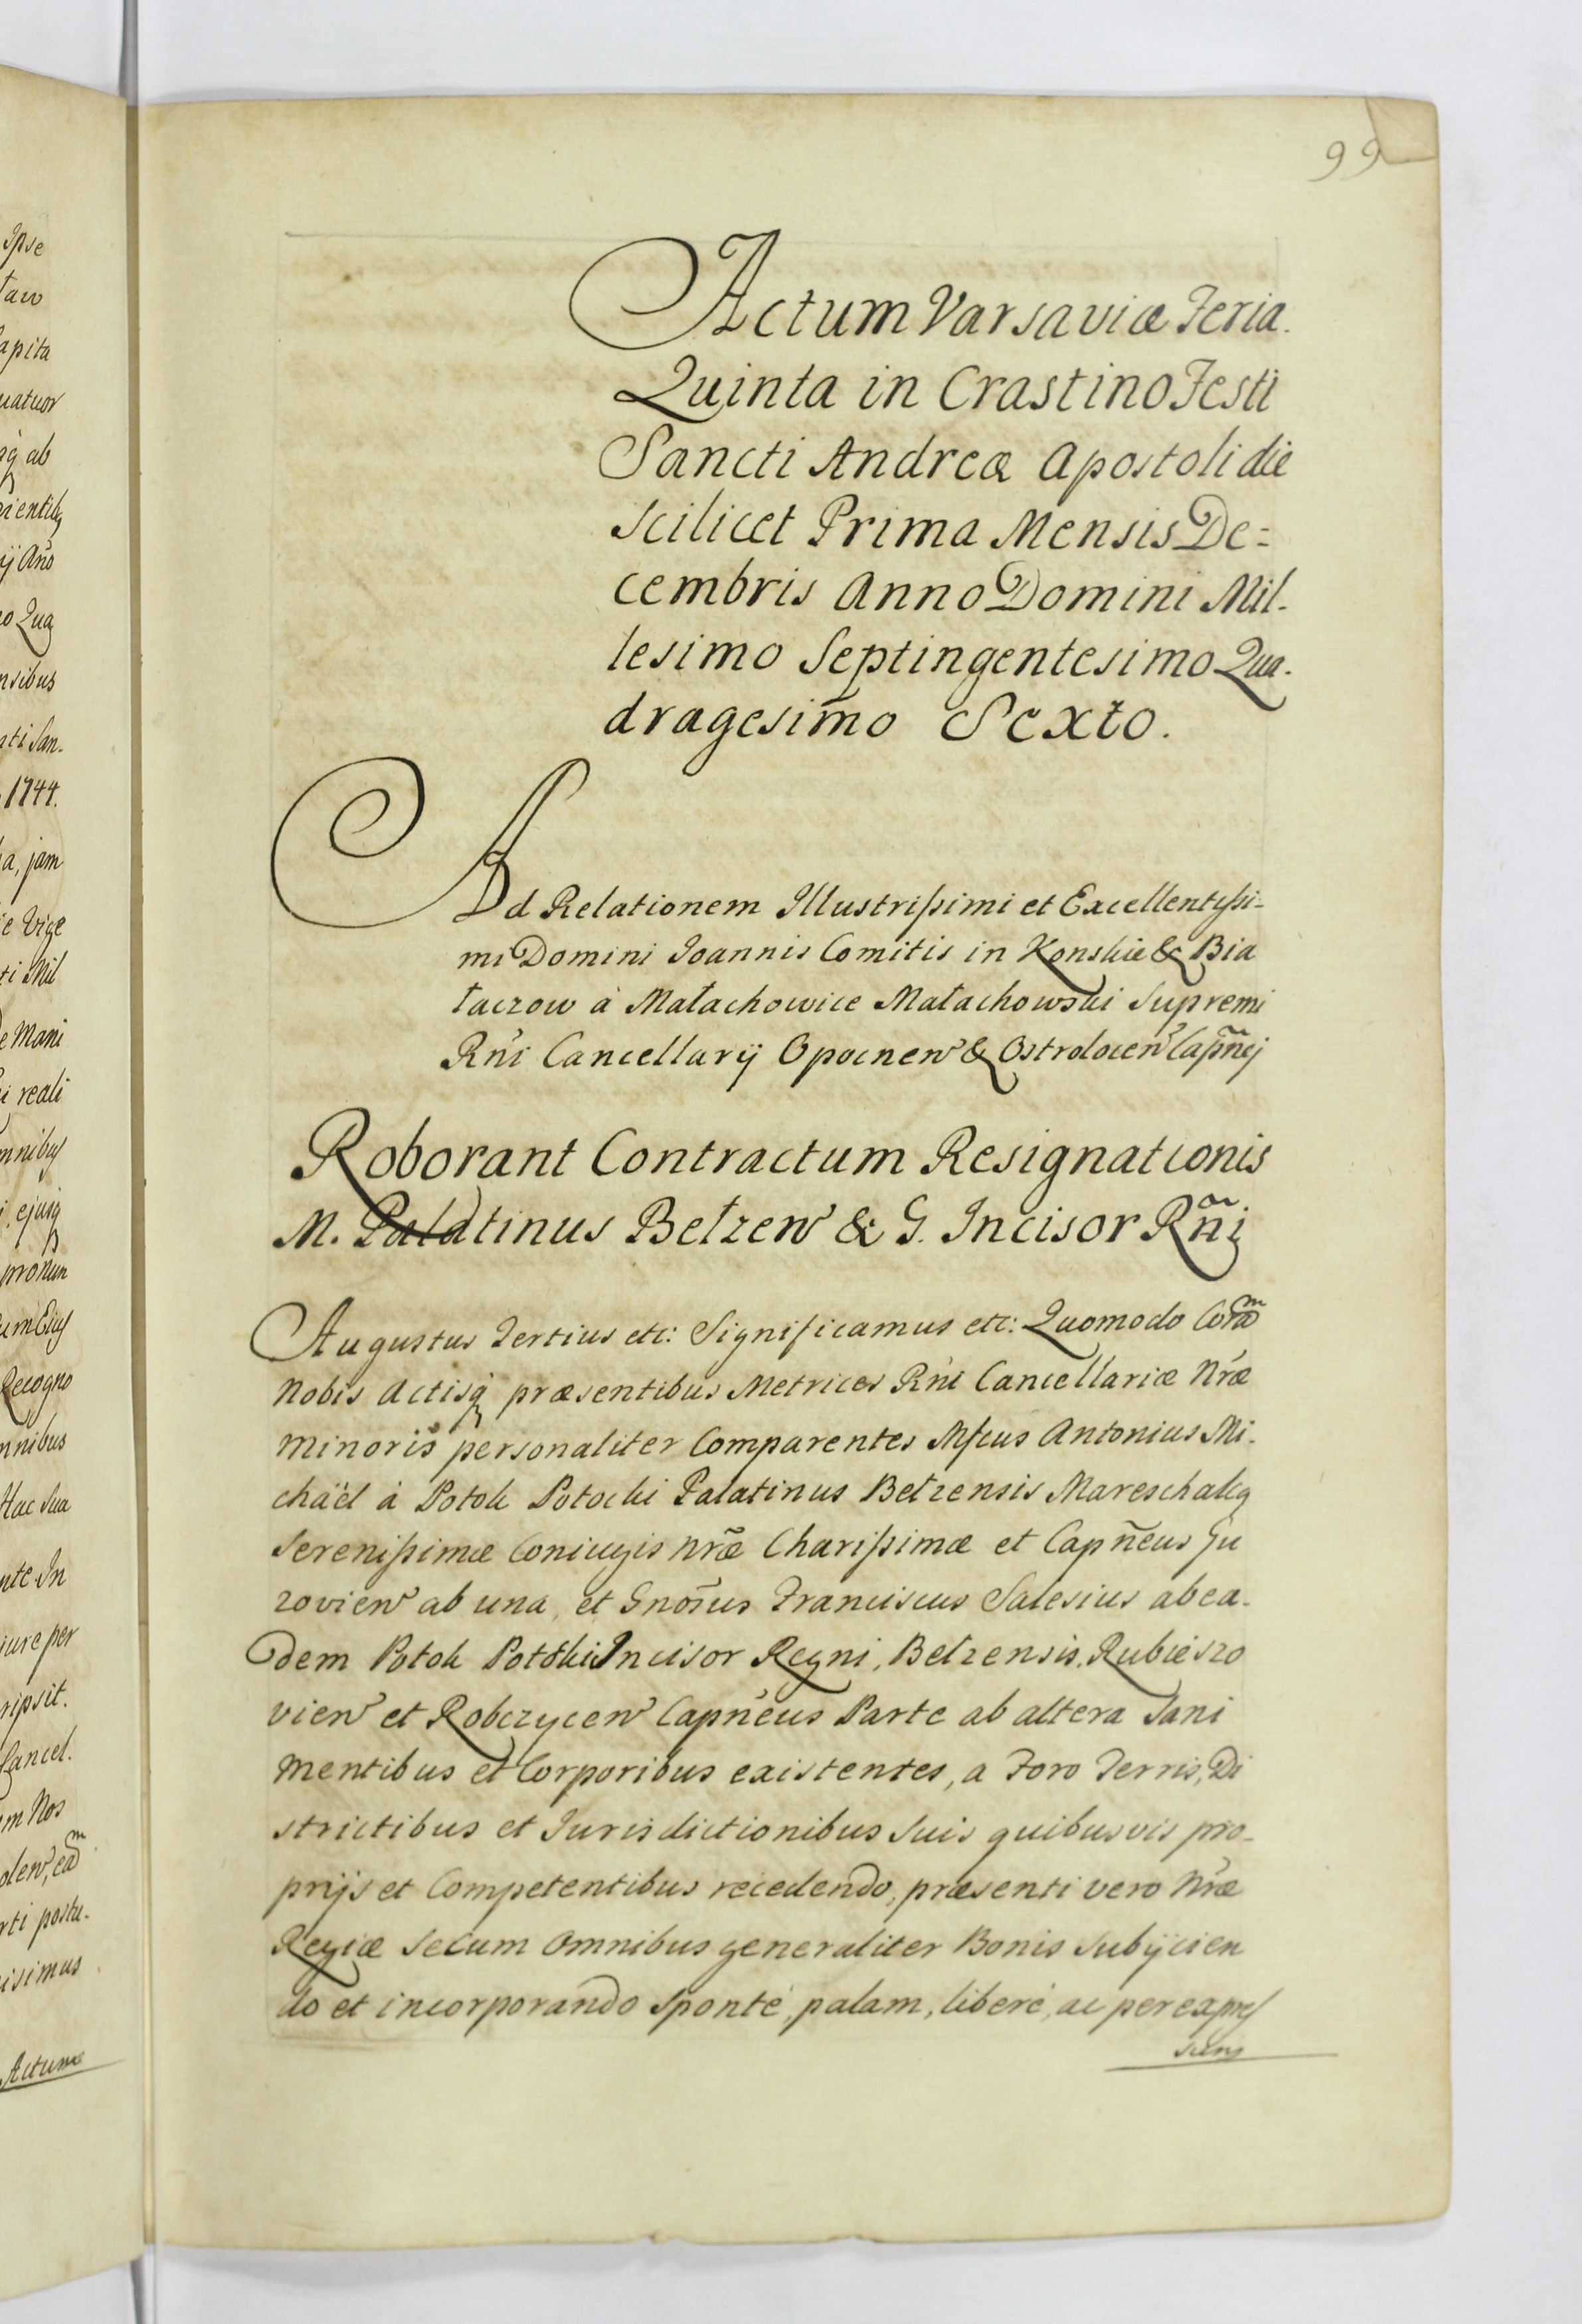 99
Ipse
apita
uatuor
ab
nsibus
ati San-
1744.
a, jam
e Vige
ti Mil
e Mani
i reali
mnibus
pronun
um Eius
Recogno
mnibus
Hac sua
nte In
iure per
ripsit.
Cancel.
m Nos
rti postu-
isimus
Actum
Actum Varsaviæ Feria
Quinta in Crastino Festi
Sancti Andreæ Apostoli die
scilicet Prima Mensis De=
cembris Anno Domini Mil-
lesimo Septingentesimo Qua-
dragesimo Sexto.
Ad Relationem Illustrißimi et Excellentyßi=
mi Domini Joannis Comitis in Konskie & Bia
łaczow à Małachowice Małachowski Supremi
Rńi Cancellarij Opocnen & Ostrolocen Capñej
Roborant Contractum Resignationis
M. Palatinus Bełzen & G. Incisor Rñi
Augustus Tertius etc: Significamus etc: Quomodo Corãm
Nobis Actisq præsentibus Metrices Rńi Cancellariæ Nræ
Minoris personaliter Comparentes Mfcus Antonius Mi-
chaël à Potok Potocki Palatinus Bełzensis Mareschalcq
Serenißimæ Coniugis Nræ Charißimæ et Capñeus Gu
zovien ab una, et Gnosus Franciscus Salesius ab ea-
dem Potok Potocki Incisor Regni, Bełzensis, Rubieszo
vien et Robczycen Capñeus Parte ab altera Sani
Mentibus et Corporibus existentes, a Foro Terris, Di
strictibus et Jurisdictionibus suis quibusvis pro-
prijs et Competentibus recedendo, præsenti vero Nræ
Regiæ secum Omnibus generaliter Bonis Subijcien
do et incorporando sponte, palam, liberè, ac per expreß